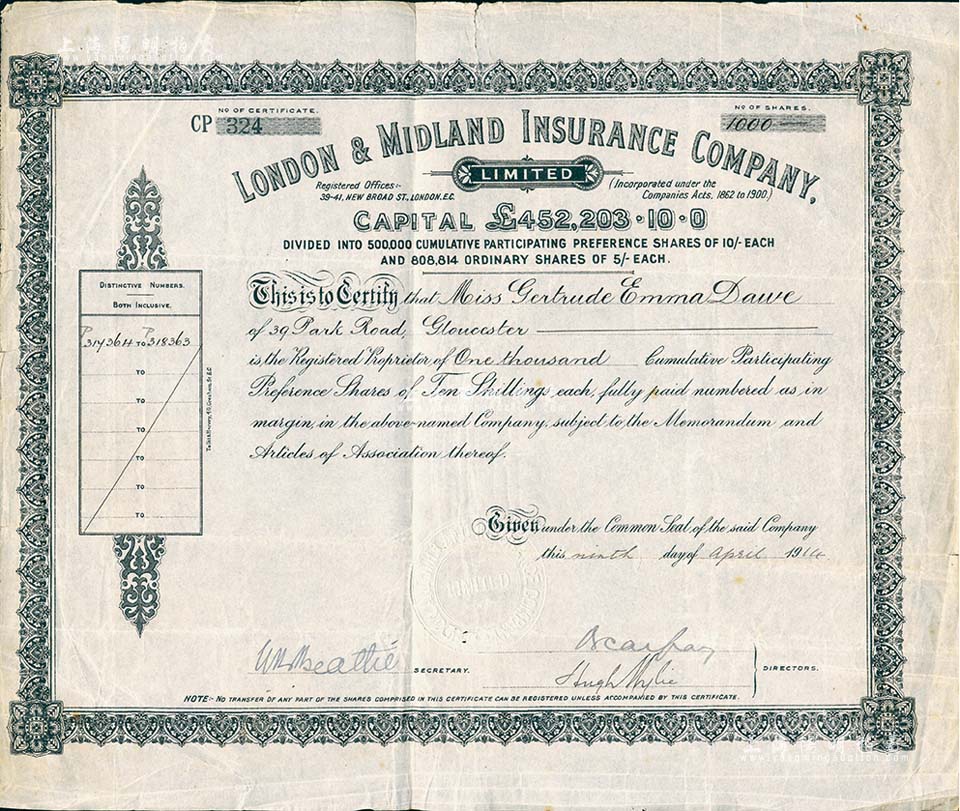 上海陽明拍賣
Nº OF CERTIFICATE.
CP 324
Nº OF SHARES.
1000
LONDON & MIDLAND INSURANCE COMPANY,
LIMITED
Registered Offices:-
39-41, NEW BROAD ST., LONDON, E.C.
(Incorporated under the
Companies Acts, 1862 to 1900.)
CAPITAL £452,203·10·0
DIVIDED INTO 500,000 CUMULATIVE PARTICIPATING PREFERENCE SHARES OF 10/- EACH
AND 808,814 ORDINARY SHARES OF 5/- EACH.
DISTINCTIVE NUMBERS.
BOTH INCLUSIVE.
P 317364 TO P 318363
TO
TO
TO
TO
TO
TO
This is to Certify that Miss Gertrude Emma Dawe
of 39 Park Road, Gloucester
is the Registered Proprietor of One thousand Cumulative Participating
Preference Shares of Ten Shillings each, fully paid numbered as in
margin, in the above-named Company, subject to the Memorandum and
Articles of Association thereof.
Given, under the Common Seal of the said Company
this ninth day of April 1914
SECRETARY.
Hugh Wylie
DIRECTORS.
NOTE:- NO TRANSFER OF ANY PART OF THE SHARES COMPRISED IN THIS CERTIFICATE CAN BE REGISTERED UNLESS ACCOMPANIED BY THIS CERTIFICATE.
上海陽明拍賣
www.yangmingauction.com